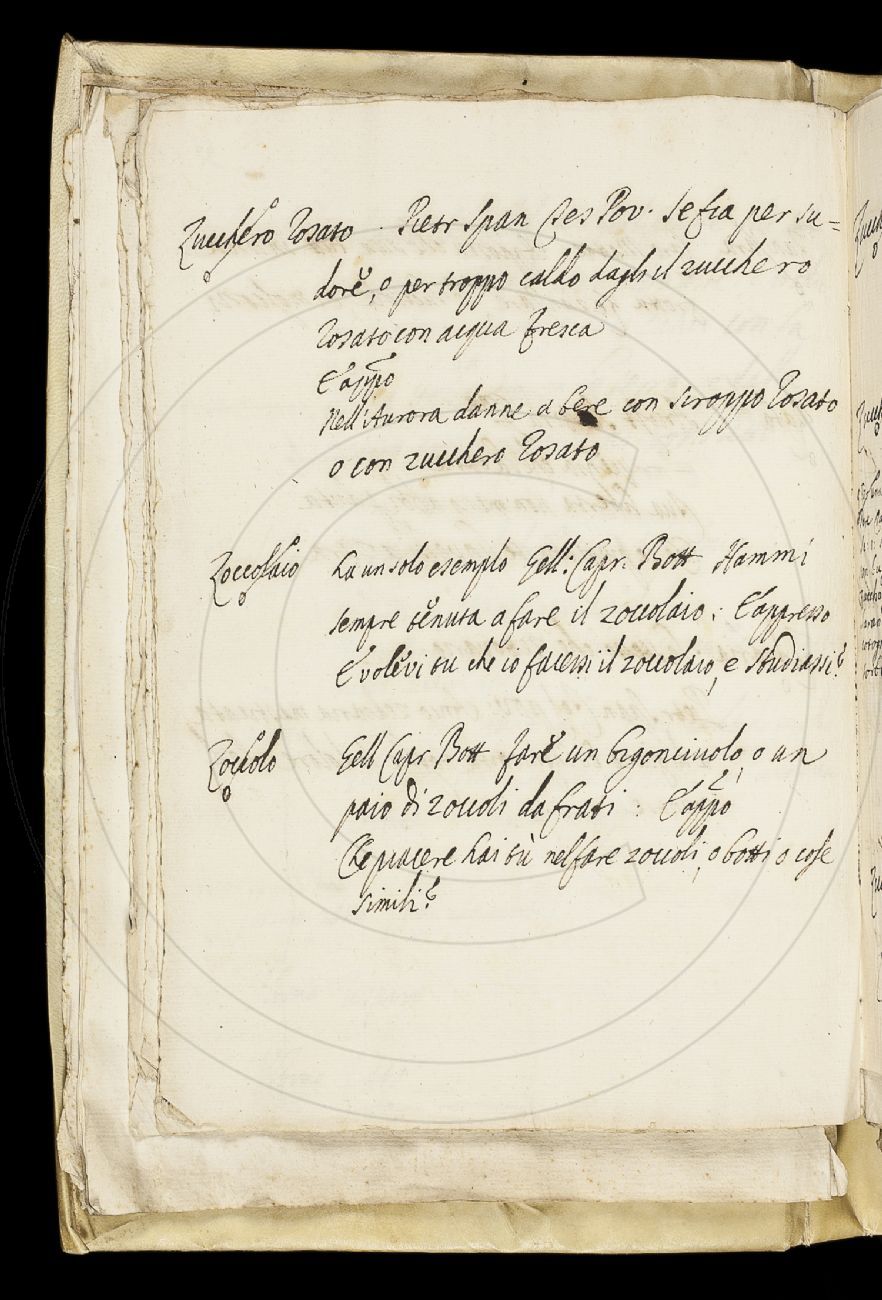 Zucchero Rosato. Pietr Span Tes Pov. Se fia per su=
dore, o per troppo caldo dagli il zucchero
Rosato con acqua fresca
E appo
Nell'Aurora danne a bere con siroppo Rosato
o con zucchero Rosato
Zoccolaio ha un solo esemplo Gell: Capr. Bott Hammi
sempre tenuta a fare il zoccolaio: E appresso
E volevi tu che io facessi il zoccolaio, e studiassi?
Zoccolo Gell Capr Bott fare un bigonciuolo, o un
paio di zoccoli da frati: E appo
Che piacere hai tù nel fare zoccoli, o botti o cose
simili?